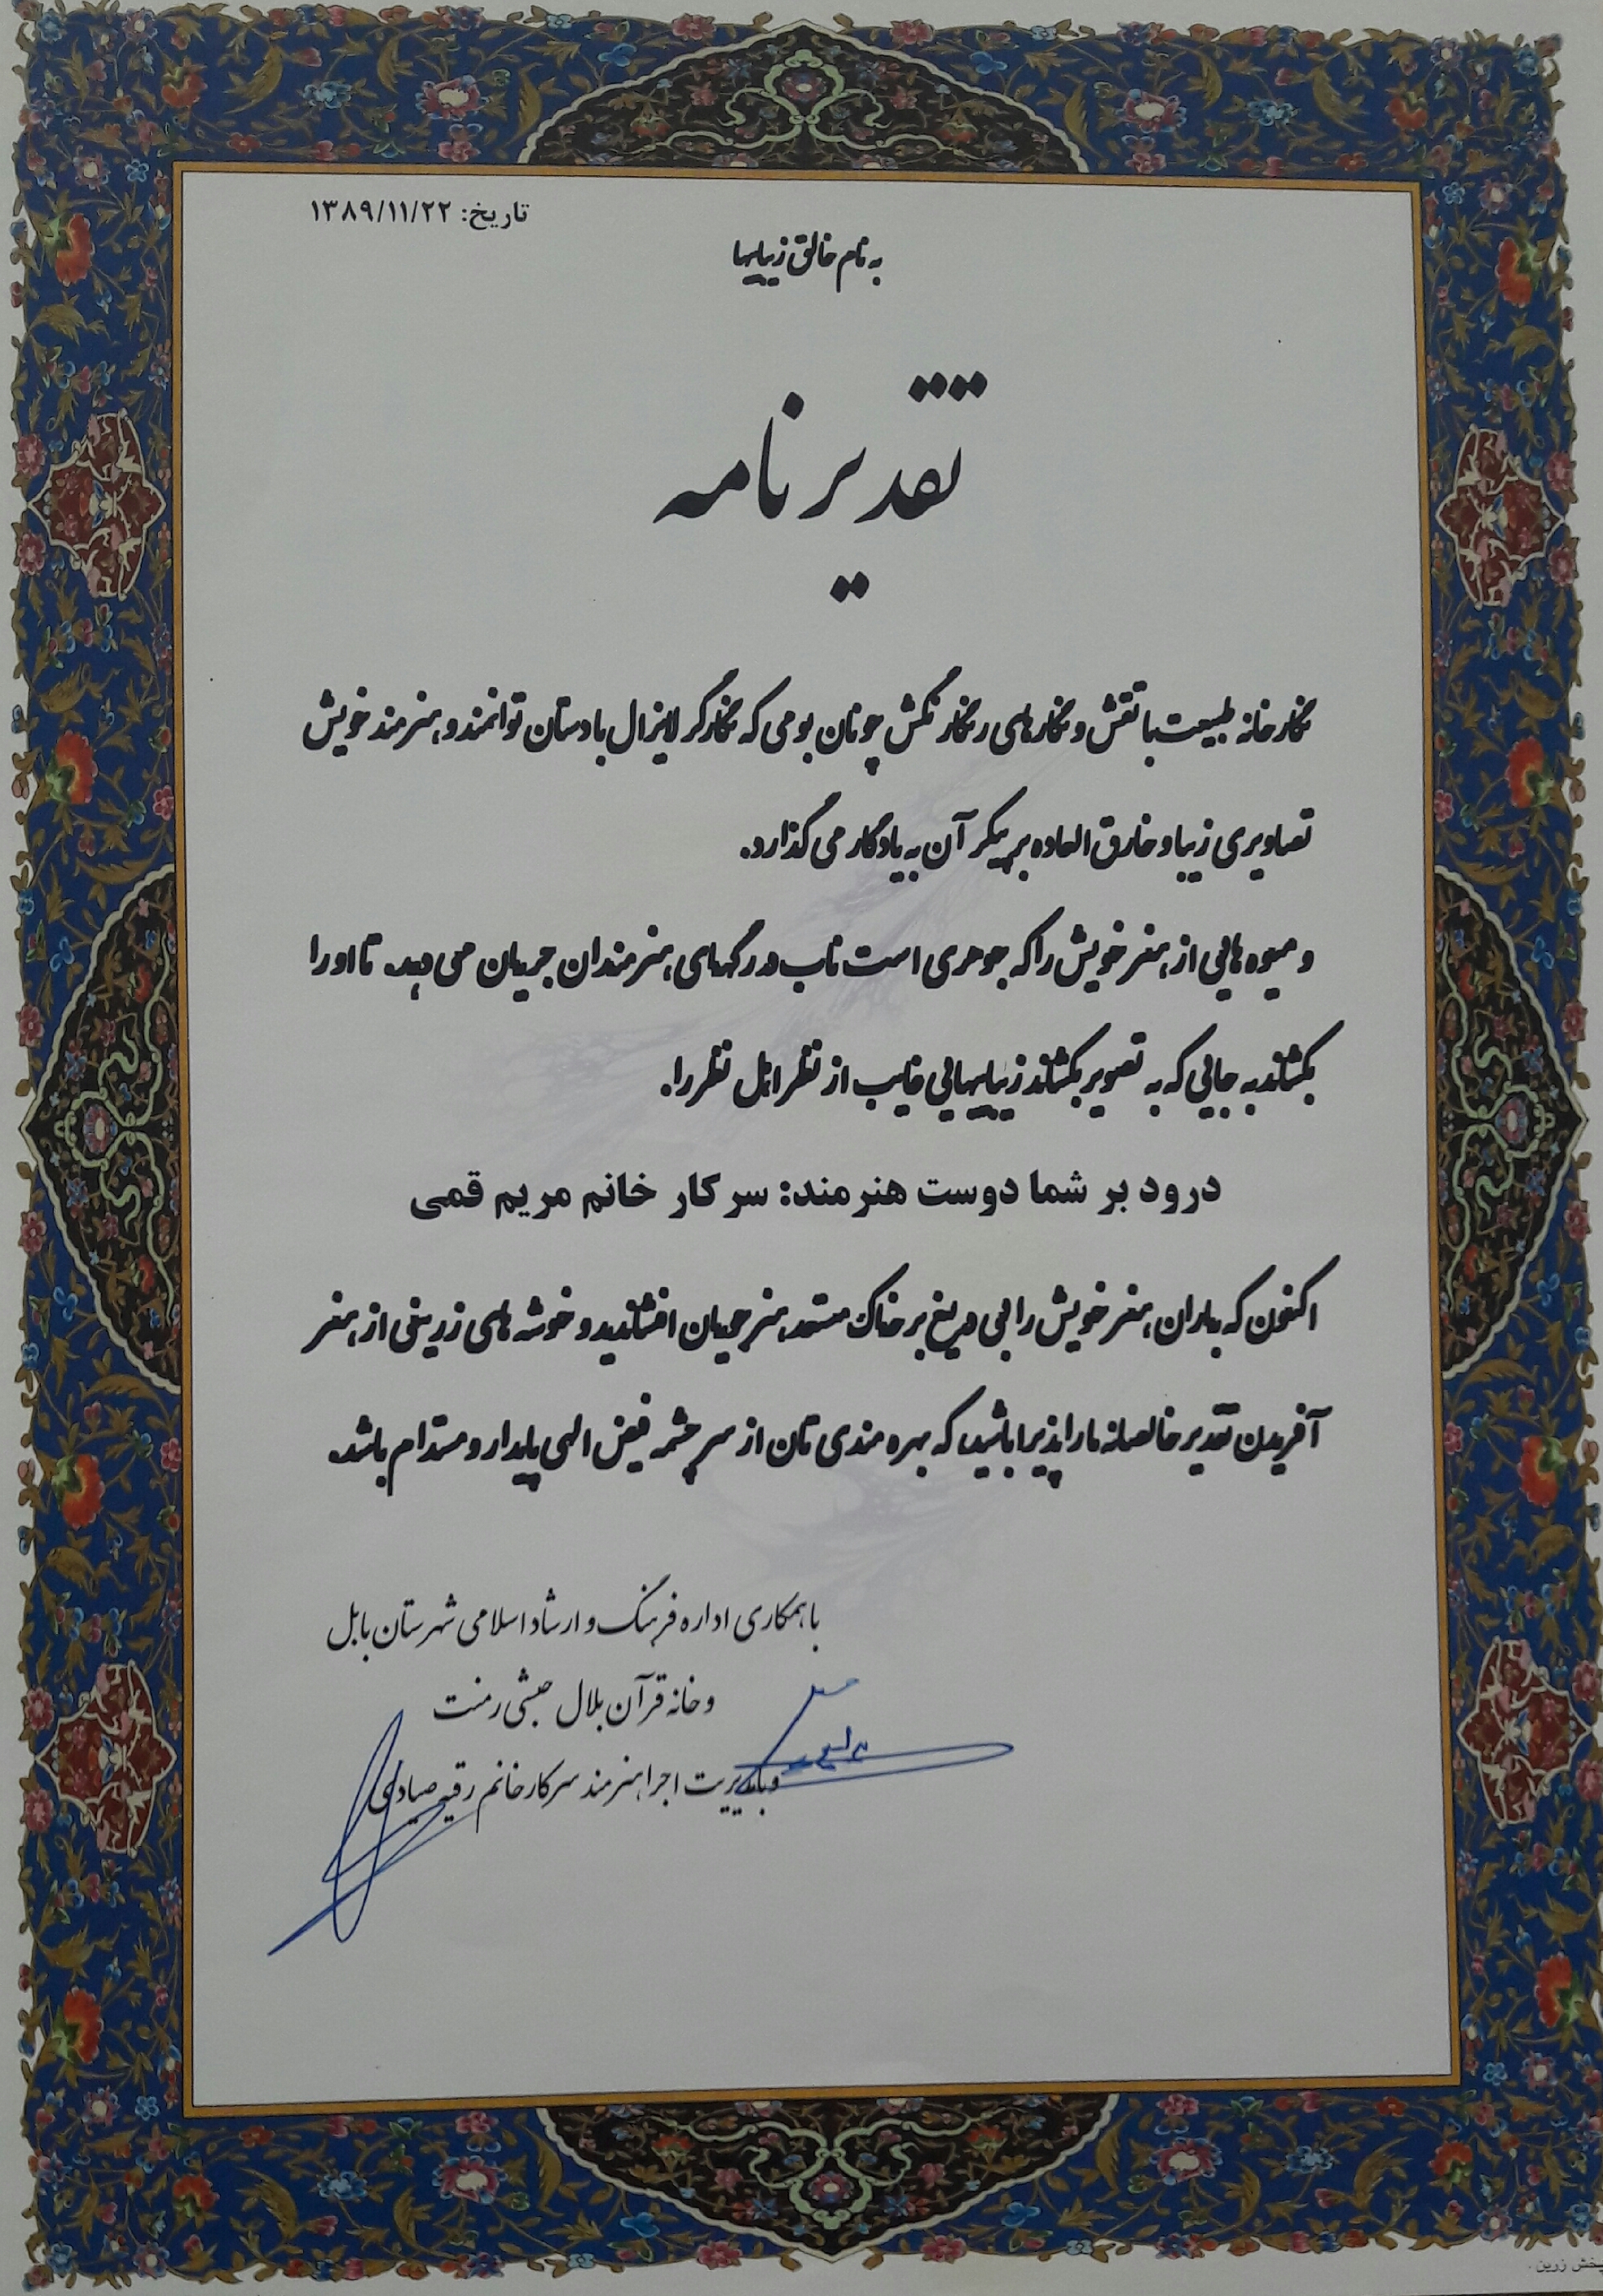 تاریخ: ۱۳۸۹/۱۱/۲۲
به نام خالق زیباییها
تقدیر نامه
نگارخانه طبیعت با نقش و نگارهای رنگارنگش چونان بومی که نگارگر لایزال با دستان توانمند و هنرمند خویش
تصاویری زیبا و خارق العاده بر پیکر آن به یادگار می گذارد.
و میوه هایی از هنر خویش را که جوهری است ناب در رگهای هنرمندان جریان می دهد تا او را
بکشاند به جایی که به تصویر بکشاند زیباییهایی غایب از نظر اهل نظر را.
درود بر شما دوست هنرمند: سرکار خانم مریم قمی
اکنون که باران هنر خویش را بی دریغ بر خاک مستعد هنرجویان افشاندید و خوشه های زرینی از هنر
آفریدن تقدیر خالصانه ما را پذیرا باشید که بهره مندی تان از سرچشمه فیض الهی پایدار و مستدام باشد.
با همکاری اداره فرهنگ و ارشاد اسلامی شهرستان بابل
و خانه قرآن بلال حبشی رمنت
و با مدیریت اجرا هنرمند سرکار خانم رقیه صیادی
پخش زرین